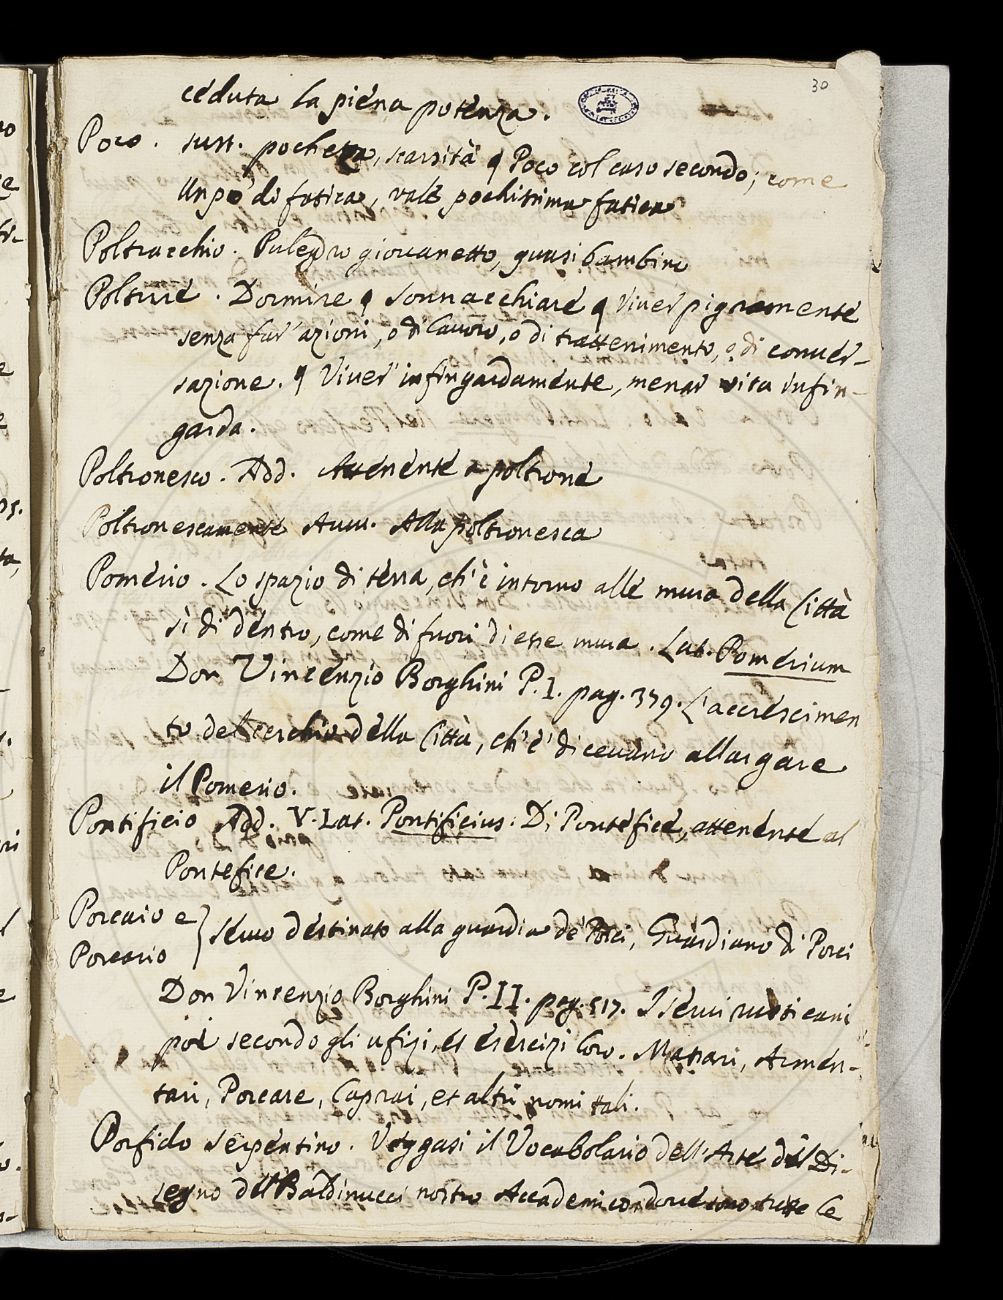 30
ceduta la piena potenza.
Poco. sust. pochezza, scarsità ¶ Poco col caso secondo; come
Un po' di fatica, vale pochissima fatica
Poltracchio. Puledro giovanetto, quasi bambino
Poltrire. Dormire ¶ sonnacchiare ¶ Viver pigramente
senza far' azioni, o di lavoro, o di trattenimento, o di conver-
sazione. ¶ Viver' infingardamente, menar vita infin-
garda.
Poltronesco. Add. Attenente a poltrone
Poltronescamente Avv. Alla poltronesca
Pomerio. Lo spazio di terra, ch'è intorno alle mura della Città
sì di dentro, come di fuori di esse mura. Lat. Pomerium
Don Vincenzio Borghini P. I. pag. 379. L'accrescimen
to del cerchio della Città, ch'e' dicevano allargare
il Pomerio.
Pontificio Add. V. Lat. Pontificius. Di Pontefice, attenente al
Pontefice.
Porcaio e
Porcario } servo destinato alla guardia de' Porci, Guardiano di Porci
Don Vincenzio Borghini P. II. pag. 517. I servi rusticani
poi secondo gli ufizi, et esercizi loro. Massari, Armen-
tari, Porcare, Caprai, et altri nomi tali.
Porfido serpentino. Veggasi il Vocabolario dell'Arte del Di-
segno del Baldinucci nostro Accademico dove sono tutte le